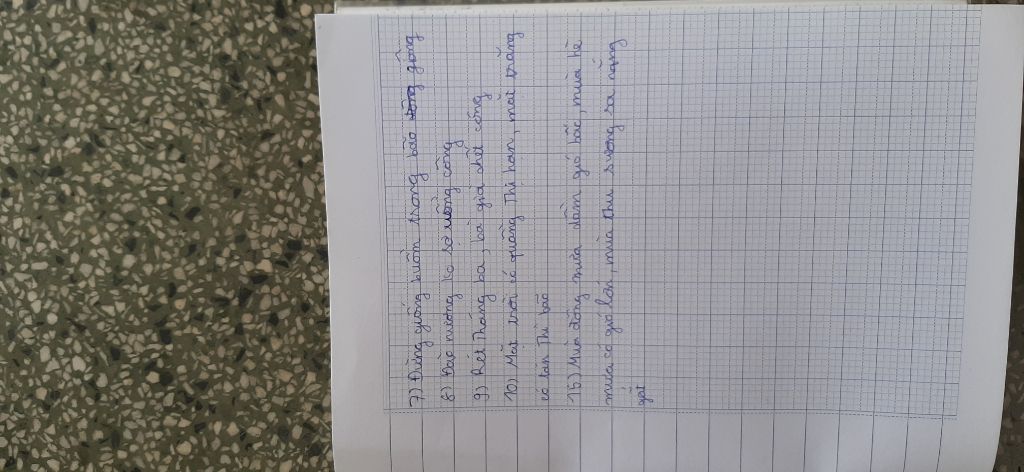 7) Đừng giông buồn trong bão giông
8) Đào mương ko sợ uổng công
9) Rét tháng ba, bà già chết cóng
10) Mặt trời có quầng thì hạn, mặt trăng
có tán thì bão
15) Mùa đông mưa dầm gió bấc, mùa hè
mưa có gió lớn, mùa thu sương sa nắng
gắt